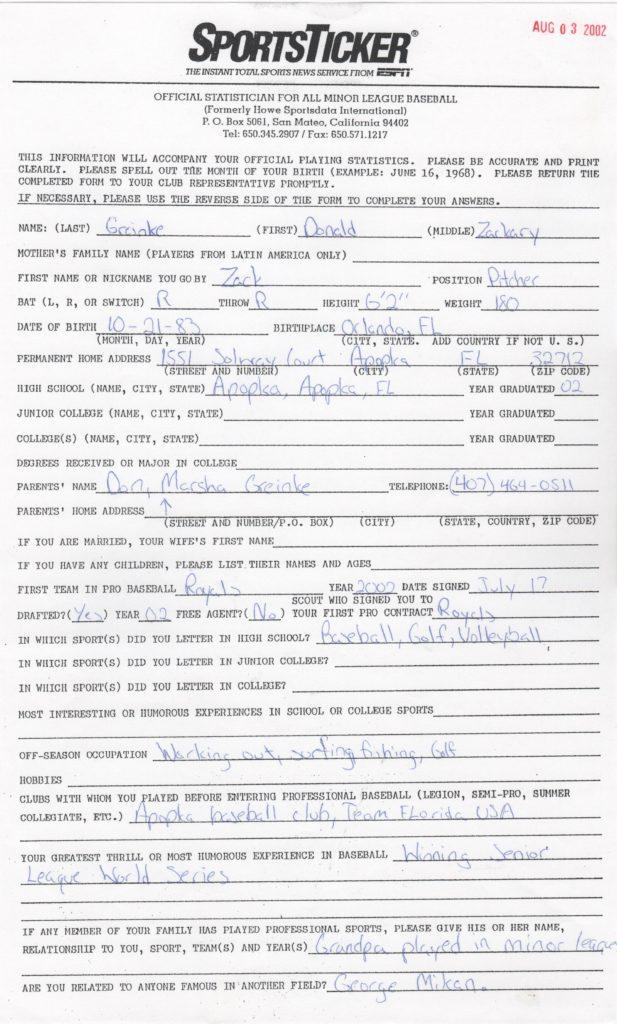 AUG 03 2002
SPORTSTICKER®
THE INSTANT TOTAL SPORTS NEWS SERVICE FROM ESPN
OFFICIAL STATISTICIAN FOR ALL MINOR LEAGUE BASEBALL
(Formerly Howe Sportsdata International)
P. O. Box 5061, San Mateo, California 94402
Tel: 650.345.2907 / Fax: 650.571.1217
THIS INFORMATION WILL ACCOMPANY YOUR OFFICIAL PLAYING STATISTICS. PLEASE BE ACCURATE AND PRINT
CLEARLY. PLEASE SPELL OUT THE MONTH OF YOUR BIRTH (EXAMPLE: JUNE 16, 1968). PLEASE RETURN THE
COMPLETED FORM TO YOUR CLUB REPRESENTATIVE PROMPTLY.
IF NECESSARY, PLEASE USE THE REVERSE SIDE OF THE FORM TO COMPLETE YOUR ANSWERS.
NAME: (LAST) Greinke (FIRST) Donald (MIDDLE) Zackary
MOTHER'S FAMILY NAME (PLAYERS FROM LATIN AMERICA ONLY)
FIRST NAME OR NICKNAME YOU GO BY Zack POSITION Pitcher
BAT (L, R, OR SWITCH) R THROW R HEIGHT 6'2" WEIGHT 180
DATE OF BIRTH 10-21-83 BIRTHPLACE Orlando, FL
(MONTH, DAY, YEAR) (CITY, STATE. ADD COUNTRY IF NOT U. S.)
PERMANENT HOME ADDRESS 1551 Court Apopka FL 32712
(STREET AND NUMBER) (CITY) (STATE) (ZIP CODE)
HIGH SCHOOL (NAME, CITY, STATE) Apopka, Apopka, FL YEAR GRADUATED 02
JUNIOR COLLEGE (NAME, CITY, STATE) YEAR GRADUATED
COLLEGE(S) (NAME, CITY, STATE) YEAR GRADUATED
DEGREES RECEIVED OR MAJOR IN COLLEGE
PARENTS' NAME Don, Marsha Greinke TELEPHONE: (407) 464-0511
PARENTS' HOME ADDRESS ↑
(STREET AND NUMBER/P.O. BOX) (CITY) (STATE, COUNTRY, ZIP CODE)
IF YOU ARE MARRIED, YOUR WIFE'S FIRST NAME
IF YOU HAVE ANY CHILDREN, PLEASE LIST THEIR NAMES AND AGES
FIRST TEAM IN PRO BASEBALL Royals YEAR 2002 DATE SIGNED July 17
SCOUT WHO SIGNED YOU TO
DRAFTED? (Yes) YEAR 02 FREE AGENT? (No) YOUR FIRST PRO CONTRACT Royals
IN WHICH SPORT(S) DID YOU LETTER IN HIGH SCHOOL? Baseball, Golf, Volleyball
IN WHICH SPORT(S) DID YOU LETTER IN JUNIOR COLLEGE?
IN WHICH SPORT(S) DID YOU LETTER IN COLLEGE?
MOST INTERESTING OR HUMOROUS EXPERIENCES IN SCHOOL OR COLLEGE SPORTS
OFF-SEASON OCCUPATION Working out, surfing, fishing, Golf
HOBBIES
CLUBS WITH WHOM YOU PLAYED BEFORE ENTERING PROFESSIONAL BASEBALL (LEGION, SEMI-PRO, SUMMER
COLLEGIATE, ETC.) Apopka baseball club, Team FLorida USA
YOUR GREATEST THRILL OR MOST HUMOROUS EXPERIENCE IN BASEBALL Winning Senior
League World Series
IF ANY MEMBER OF YOUR FAMILY HAS PLAYED PROFESSIONAL SPORTS, PLEASE GIVE HIS OR HER NAME,
RELATIONSHIP TO YOU, SPORT, TEAM(S) AND YEAR(S) Grandpa played in minor league
ARE YOU RELATED TO ANYONE FAMOUS IN ANOTHER FIELD? George Mikan.